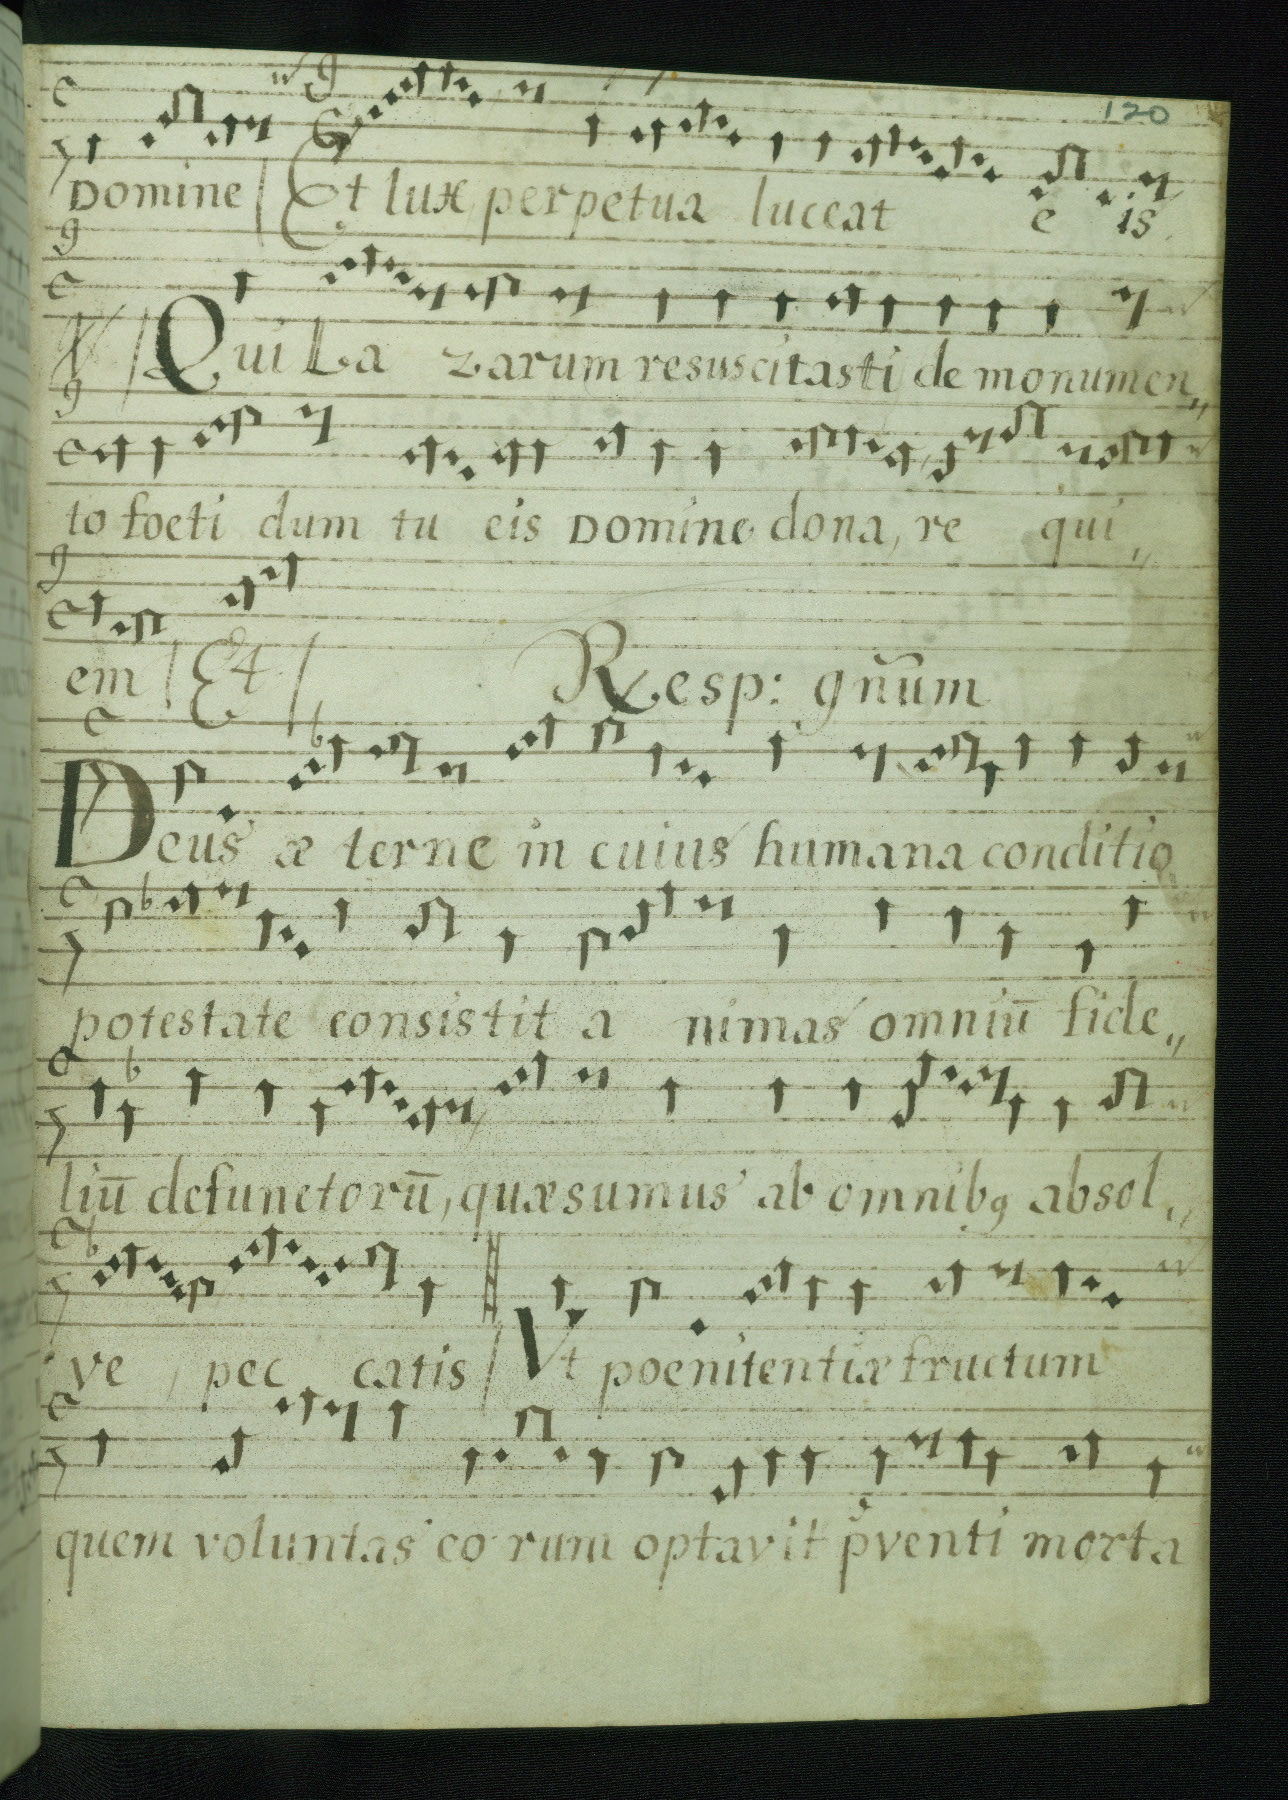 120
Domine | Et lux, perpetua luceat e is
℣ | Qui La zarum resuscitasti de monumen„
to foeti dum tu eis Domine dona, re qui„
em | Et | Resp: gñum
Deus æ terne in cuius humana conditio
potestate consistit a nimas omniū fide„
liū defunctorū, quæsumus ab omnibꝫ absol„
ve, pec catis | Vt poenitentiæ fructum
quem voluntas eo rum optavit p̄venti morta